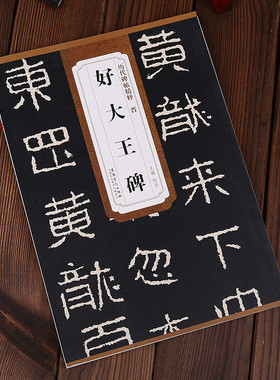 历代碑帖精粹 晋
好大王碑
黄龍来下迎
忽本
東罡黄龍頁